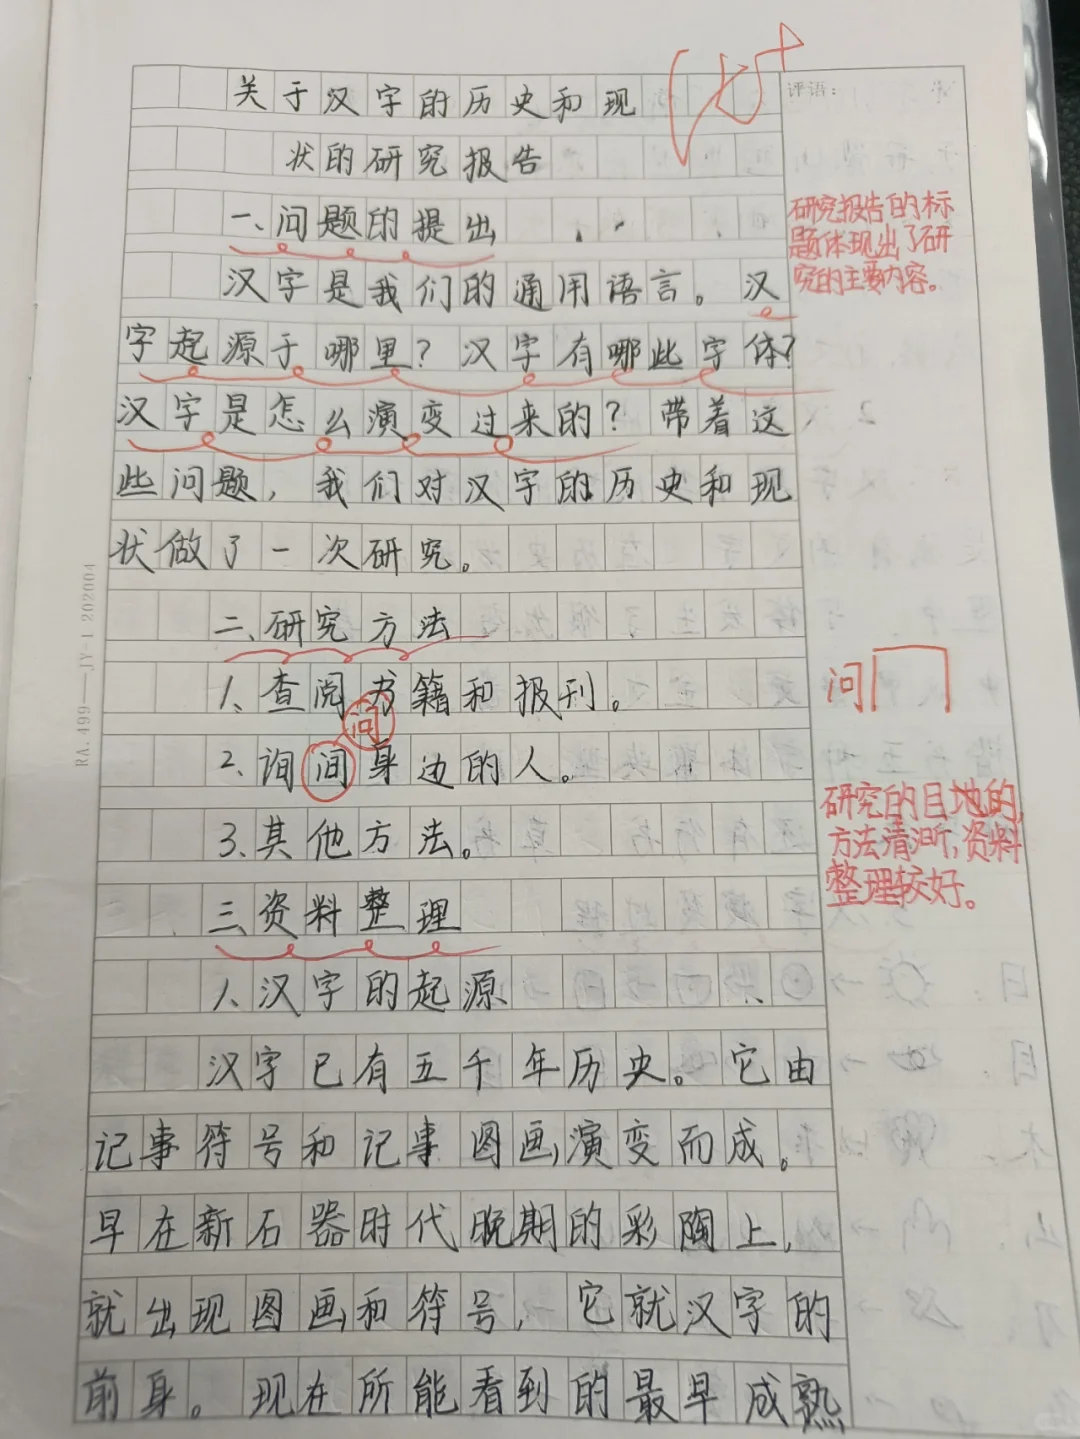 关于汉字的历史和现
优+
评语：
状的研究报告
一、问题的提出
研究报告的标
题体现出了研
究的主要内容。
汉字是我们的通用语言。汉
字起源于哪里？汉字有哪些字体？
汉字是怎么演变过来的？带着这
些问题，我们对汉字的历史和现
状做了一次研究。
二、研究方法
1、查阅书籍和报刊。
问
问
2、询间身边的人。
3、其他方法。
研究的目地的，
方法清淅，资料
整理较好。
三、资料整理
1、汉字的起源
汉字已有五千年历史。它由
记事符号和记事图画演变而成。
早在新石器时代晚期的彩陶上，
就出现图画和符号，它就汉字的
前身。现在所能看到的最早成熟
RA.499—JY-1 202004